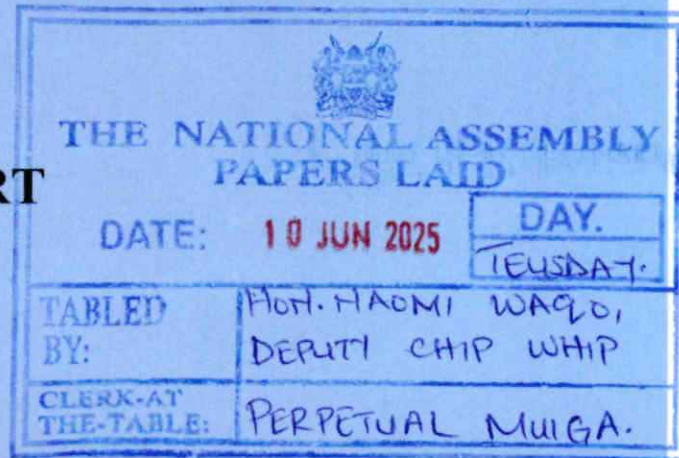 THE NATIONAL ASSEMBLY
PAPERS LAID
RT
DATE: 10 JUN 2025
DAY.
TEUSDAY.
TABLED BY:
HON. NAOMI WAQO,
DEPUTY CHIP WHIP
CLERK-AT THE-TABLE:
PERPETUAL MUIGA.